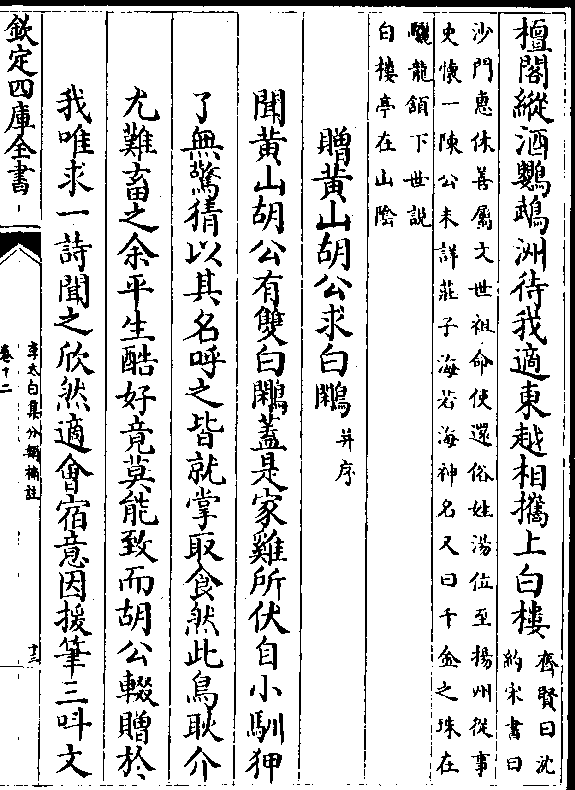 檀閣縱酒鸚鵡洲待我適東越相攜上白樓
齊賢曰沈
約宋書曰
沙門惠休善屬文世祖命使還俗姓湯位至揚州從事
史懷一陳公未詳莊子海若海神名又曰千金之珠在
驪龍頷下世說
白樓亭在山隂
贈黄山胡公求白鷴
并序
聞黄山胡公有雙白鷴蓋是家雞所伏自小馴狎
了無驚猜以其名呼之皆就掌取食然此鳥耿介
尤難畜之余平生酷好竟莫能致而胡公輟贈於
我唯求一詩聞之欣然適會宿意因援筆三呌文
欽定四庫全書
李太白集分類補註
卷十二
十三